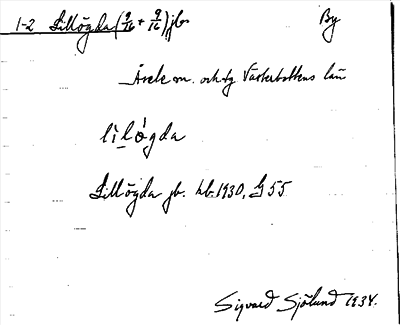 1-2 Lillögda (9/16 + 9/16) jbr By
Åsele sn. och tg Västerbottens län
lìlógda
Lillögda jb. hb. 1930, G 55
Sigvard Sjölund 1934.